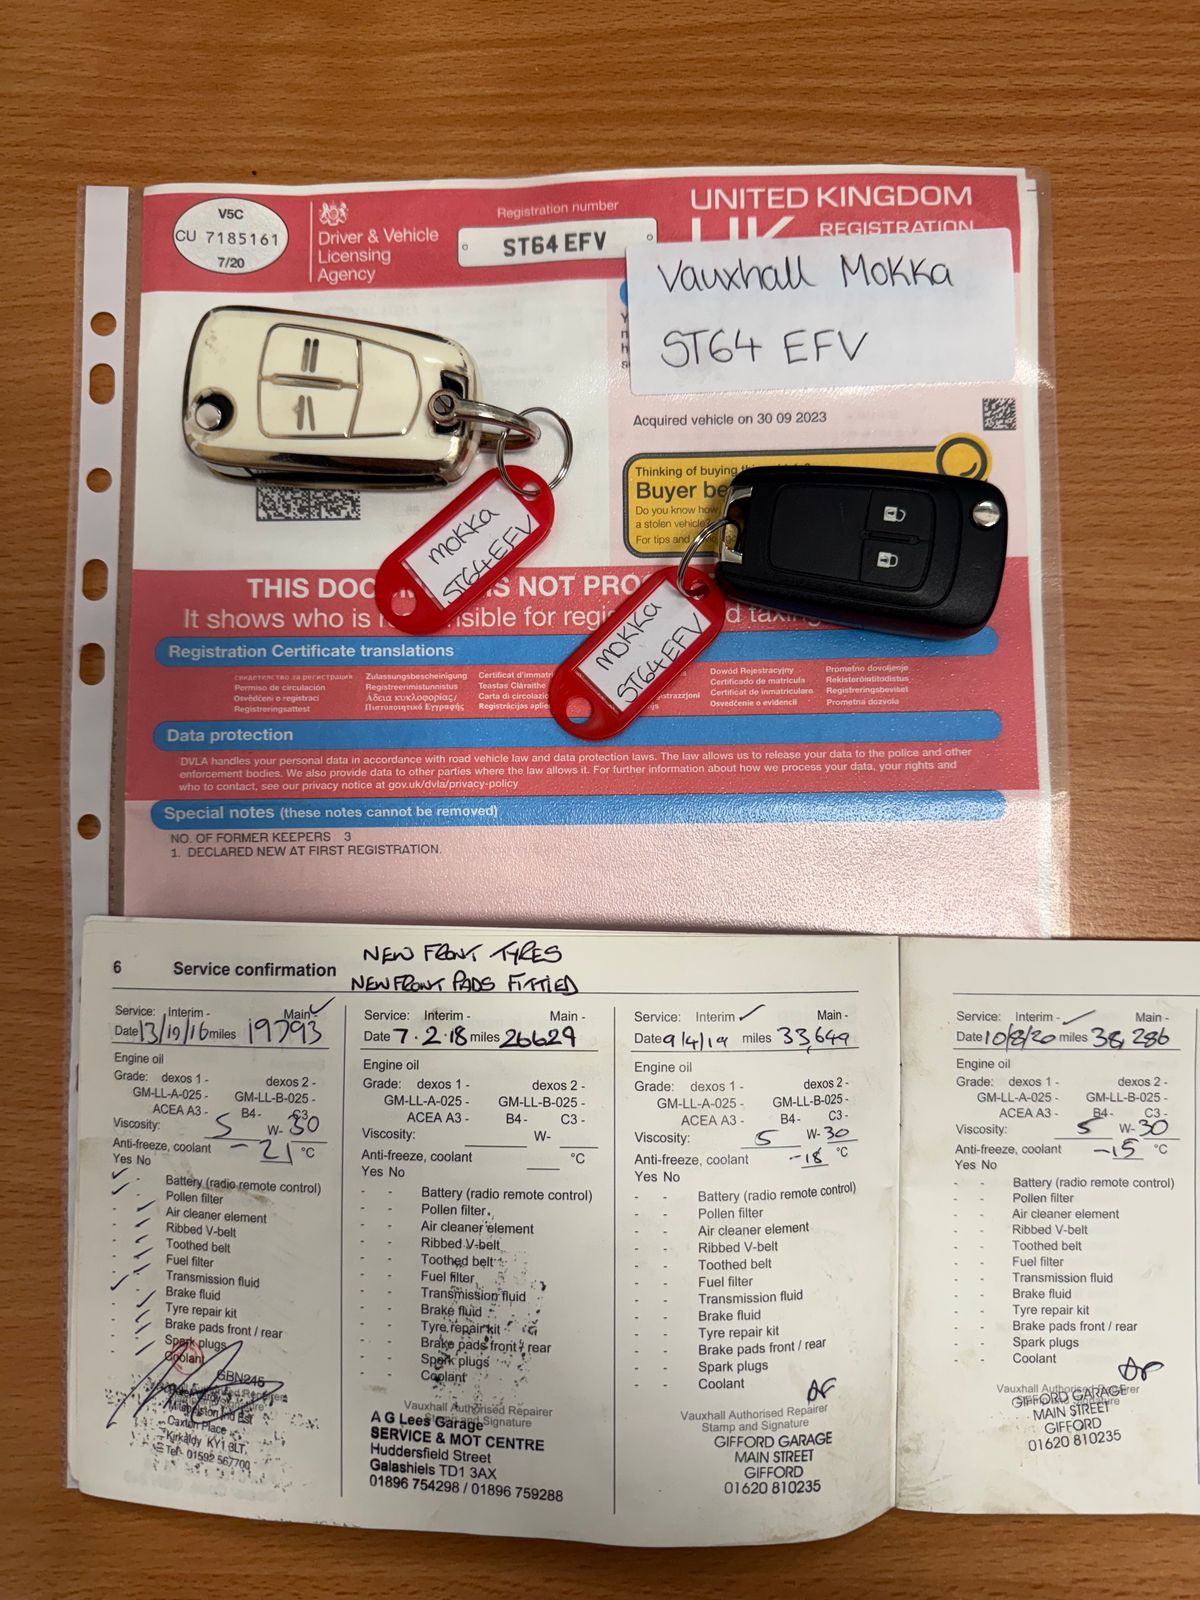 V5C
CU 7185161
7/20
Driver & Vehicle
Licensing
Agency
Registration number
ST64 EFV
UNITED KINGDOM
UK REGISTRATION
Vauxhall Mokka
ST64 EFV
Acquired vehicle on 30 09 2023
Thinking of buying
Buyer be
Do you know how
a stolen vehicle?
For tips and
MOKKA
ST64EFV
MOKKA
ST64EFV
THIS DOC IS NOT PRO
It shows who is nsible for regi d taxing
Registration Certificate translations
свидетельство за регистрация
Permiso de circulación
Osvědčení o registraci
Registreringsattest
Zulassungsbescheinigung
Registreerimistunnistus
Άδεια κυκλοφορίας/
Πιστοποιητικό Εγγραφής
Certificat d'immatri
Teastas Cláraithe
Carta di circolazio
Registrācijas aplie
Dowód Rejestracyjny
Certificado de matrícula
Certificat de inmatriculare
Osvedčenie o evidencii
Prometno dovoljenje
Rekisteröintitodistus
Registreringsbeviset
Prometna dozvola
Data protection
DVLA handles your personal data in accordance with road vehicle law and data protection laws. The law allows us to release your data to the police and other
enforcement bodies. We also provide data to other parties where the law allows it. For further information about how we process your data, your rights and
who to contact, see our privacy notice at gov.uk/dvla/privacy-policy
Special notes (these notes cannot be removed)
NO. OF FORMER KEEPERS 3
1. DECLARED NEW AT FIRST REGISTRATION.
6 Service confirmation
NEW FRONT TYRES
NEW FRONT PADS FITTED
Service: Interim - Main -
Date 13/10/16 miles 19793
Engine oil
Grade: dexos 1 - dexos 2 -
GM-LL-A-025 - GM-LL-B-025 -
ACEA A3 - B4 - C3 -
Viscosity: 5 W- 30
Anti-freeze, coolant -21 °C
Yes No
Battery (radio remote control)
Pollen filter
Air cleaner element
Ribbed V-belt
Toothed belt
Fuel filter
Transmission fluid
Brake fluid
Tyre repair kit
Brake pads front / rear
Spark plugs
Coolant
GBN245
Caxton Place
Kirkcaldy KY1 3LT
Tel: 01592 567700
Service: Interim - Main -
Date 7.2.18 miles 26629
Engine oil
Grade: dexos 1 - dexos 2 -
GM-LL-A-025 - GM-LL-B-025 -
ACEA A3 - B4 - C3 -
Viscosity: W-
Anti-freeze, coolant °C
Yes No
Battery (radio remote control)
Pollen filter
Air cleaner element
Ribbed V-belt
Toothed belt
Fuel filter
Transmission fluid
Brake fluid
Tyre repair kit
Brake pads front / rear
Spark plugs
Coolant
Vauxhall Authorised Repairer
Stamp and Signature
A G Lees Garage
SERVICE & MOT CENTRE
Huddersfield Street
Galashiels TD1 3AX
01896 754298 / 01896 759288
Service: Interim - Main -
Date 9/4/19 miles 33,649
Engine oil
Grade: dexos 1 - dexos 2 -
GM-LL-A-025 - GM-LL-B-025 -
ACEA A3 - B4 - C3 -
Viscosity: 5 W- 30
Anti-freeze, coolant -18 °C
Yes No
Battery (radio remote control)
Pollen filter
Air cleaner element
Ribbed V-belt
Toothed belt
Fuel filter
Transmission fluid
Brake fluid
Tyre repair kit
Brake pads front / rear
Spark plugs
Coolant
Vauxhall Authorised Repairer
Stamp and Signature
GIFFORD GARAGE
MAIN STREET
GIFFORD
01620 810235
Service: Interim - Main -
Date 10/8/20 miles 38,286
Engine oil
Grade: dexos 1 - dexos 2 -
GM-LL-A-025 - GM-LL-B-025 -
ACEA A3 - B4 - C3 -
Viscosity: 5 W- 30
Anti-freeze, coolant -15 °C
Yes No
Battery (radio remote control)
Pollen filter
Air cleaner element
Ribbed V-belt
Toothed belt
Fuel filter
Transmission fluid
Brake fluid
Tyre repair kit
Brake pads front / rear
Spark plugs
Coolant
Vauxhall Authorised Repairer
GIFFORD GARAGE
MAIN STREET
GIFFORD
01620 810235